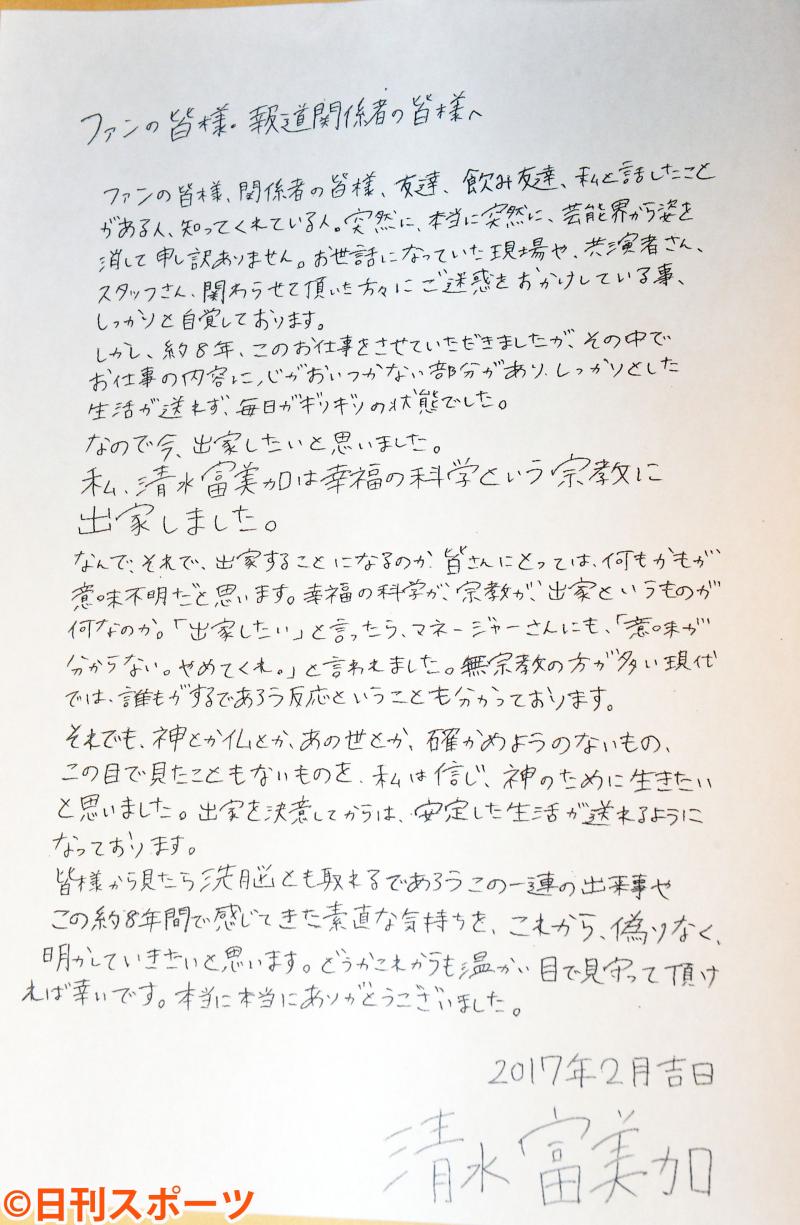 ファンの皆様・報道関係者の皆様へ
ファンの皆様、関係者の皆様、友達、飲み友達、私と話したこと
がある人、知ってくれている人。突然に、本当に突然に、芸能界から姿を
消して申し訳ありません。お世話になっていた現場や、共演者さん、
スタッフさん、関わらせて頂いた方々にご迷惑をおかけしている事、
しっかりと自覚しております。
しかし、約8年、このお仕事をさせていただきましたが、その中で
お仕事の内容に心がおいつかない部分があり、しっかりとした
生活が送れず、毎日がギリギリの状態でした。
なので今、出家したいと思いました。
私、清水富美加は幸福の科学という宗教に
出家しました。
なんで、それで、出家することになるのか、皆さんにとっては、何もかもが
意味不明だと思います。幸福の科学が、宗教が、出家というものが
何なのか。「出家したい」と言ったら、マネージャーさんにも、「意味が
分からない。やめてくれ。」と言われました。無宗教の方が多い現代
では、誰もがするであろう反応ということも分かっております。
それでも、神とか仏とか、あの世とか、確かめようのないもの、
この目で見たこともないものを、私は信じ、神のために生きたい
と思いました。出家を決意してからは、安定した生活が送れるように
なっております。
皆様から見たら洗脳とも取れるであろうこの一連の出来事や
この約8年間で感じてきた素直な気持ちを、これから、偽りなく、
明かしていきたいと思います。どうかこれからも温かい目で見守って頂け
れば幸いです。本当に本当にありがとうございました。
2017年2月吉日
清水富美加
©日刊スポーツ